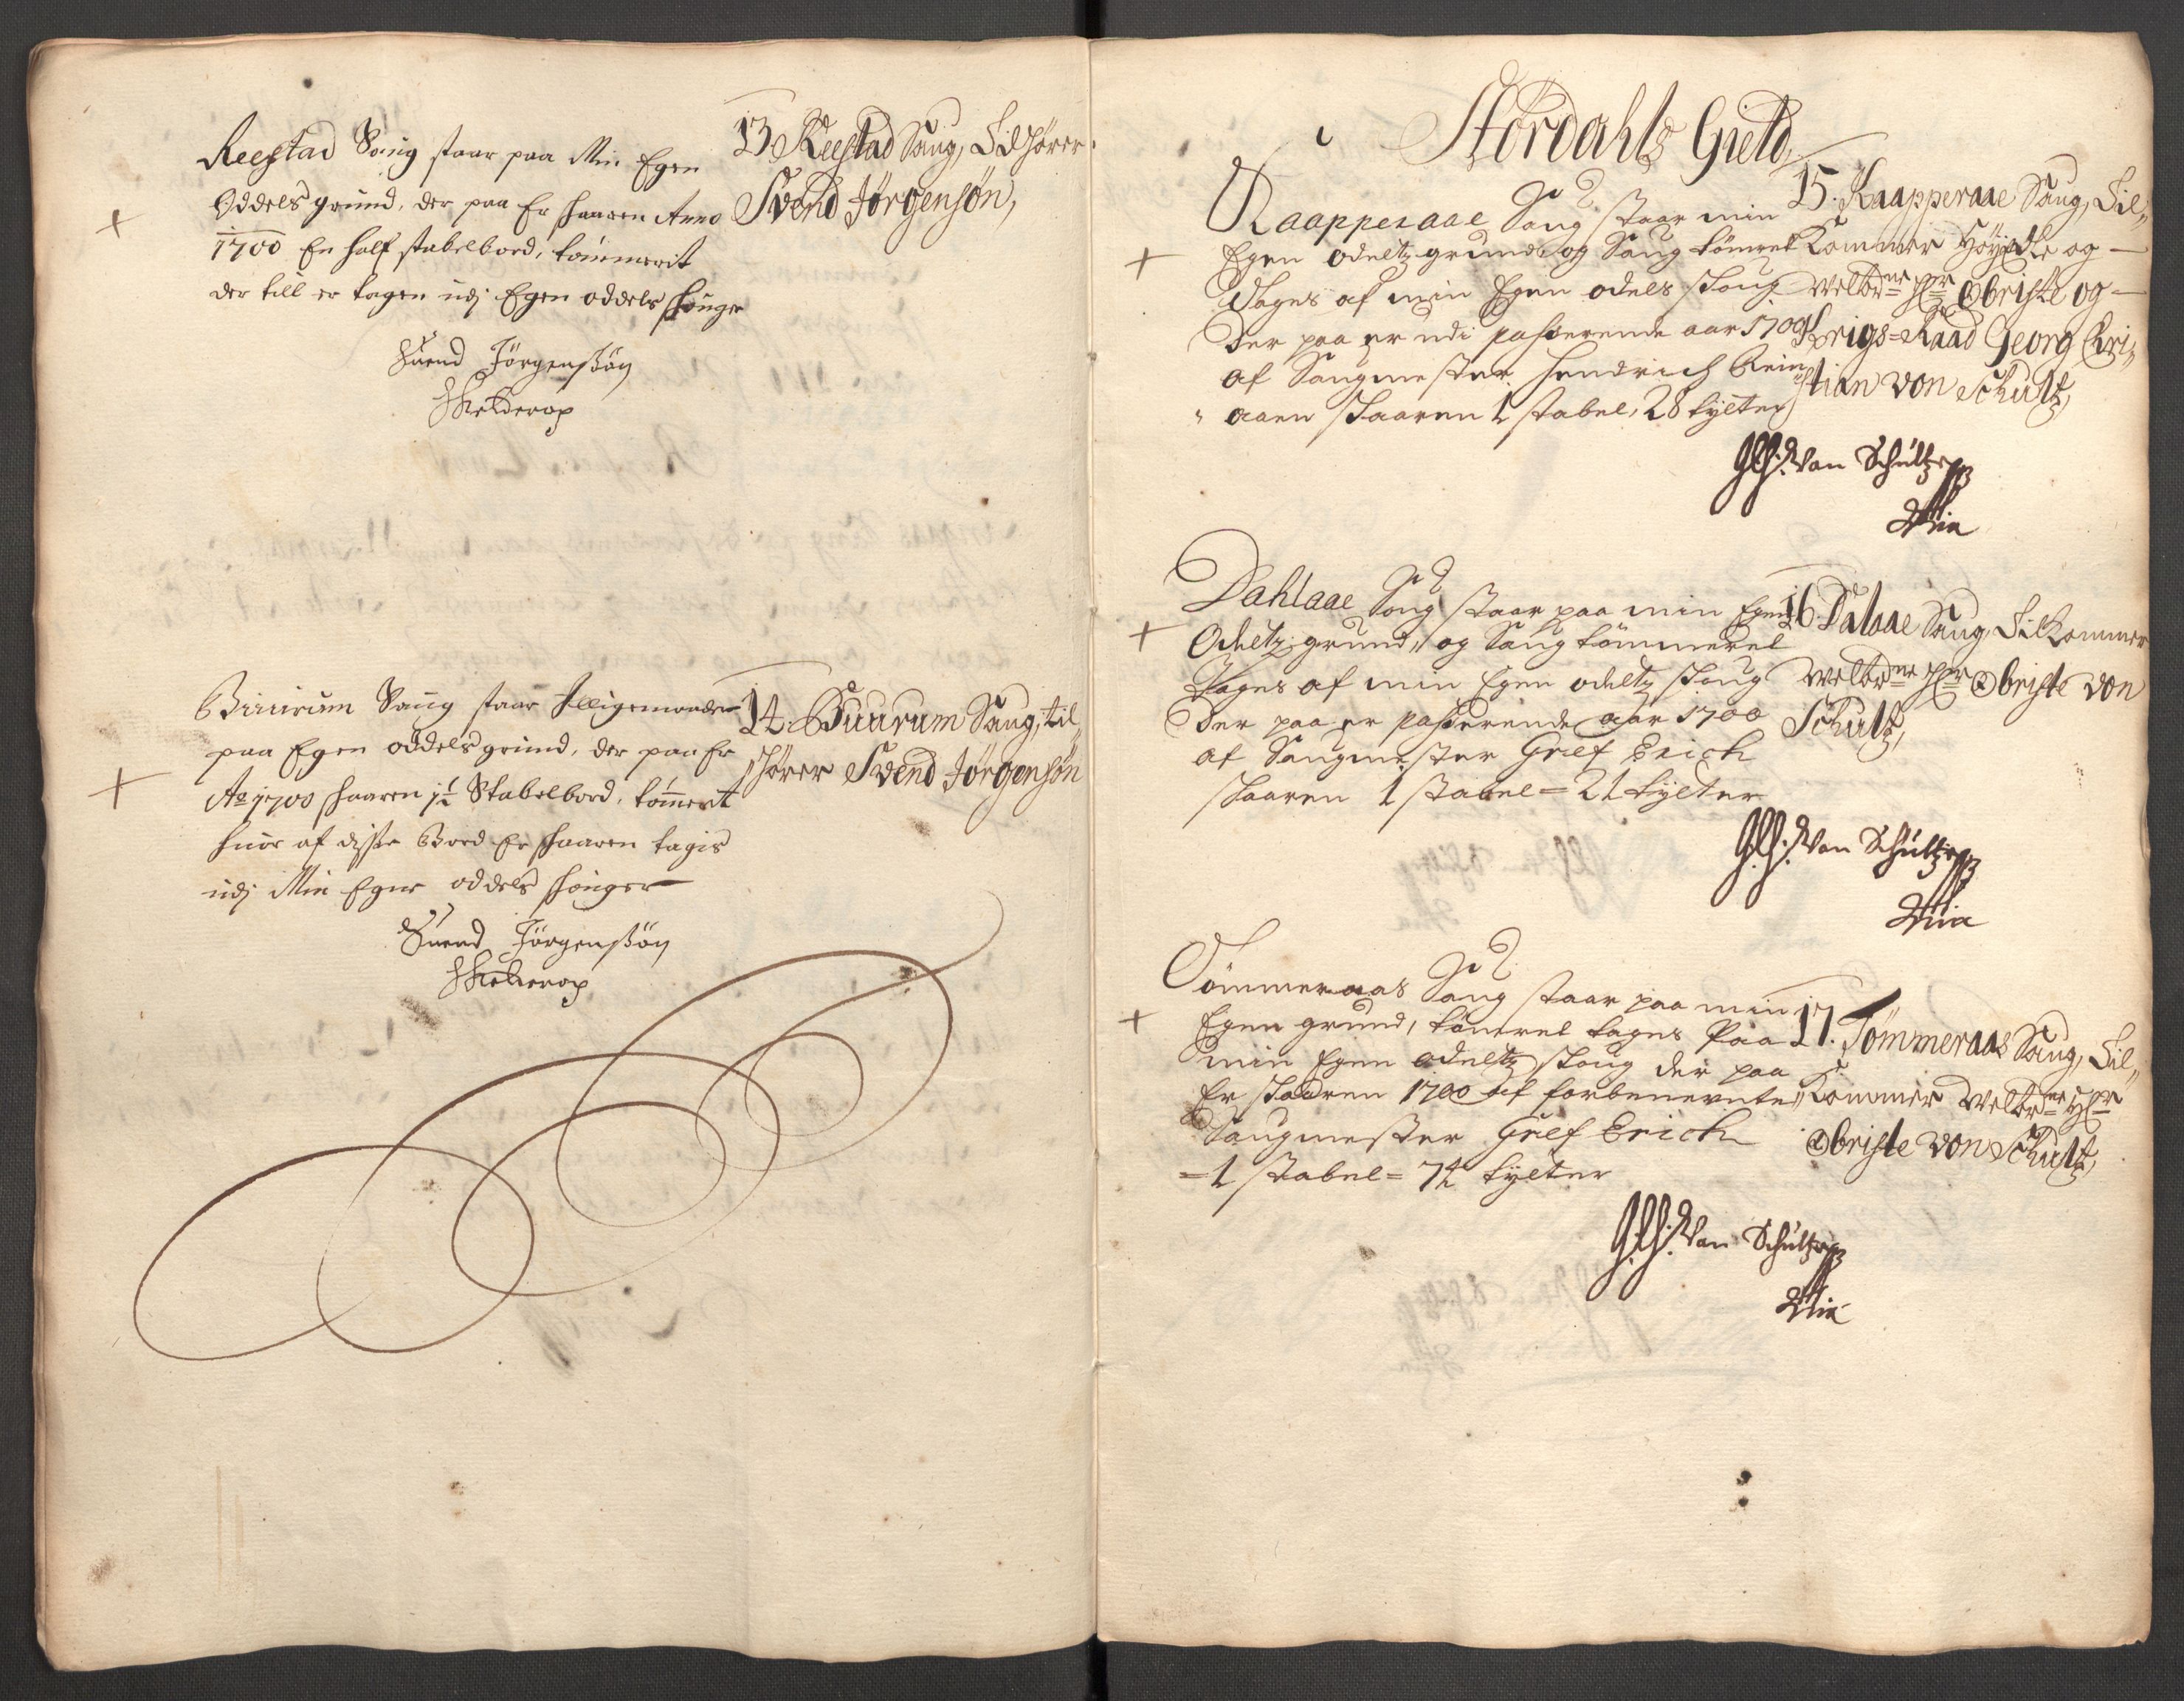 Reestad Saug staar paa Min Egen
Oddels grund, der paa Er skaaren Anno
1700 En half stabelbord, tömmerit
der till er tagen udj Egen oddels skouge
Suend Jörgensøn
13. Reestad Saug, Tilhører
Svend Jørgensøn,
Buurum Saug staar
paa Egen oddels grund, der paa Er
Ao 1700 skaaren 1½ Stabelbord, tömerit
huor af disse Bord Er skaaren tagis
udj Min Egne oddels skouger
Suend Jörgensøn
14. Buurum Saug, til
hører Svend Jørgensøn
Stördahls Gield,
Kaapperaae Saug staar min
Egen odeltz grund og Saug tömret
tages af min Egen odels skoug
der paa er udi passerende aar 1700
af Saugmester Hendrich
skaaren 1 stabel, 28 tylter
15. Kaapperaae Saug, Til„
Kommer Höyædle og
welb.ne Hr Obriste og
Krigs-Raad Georg Chri„
stian von Schultz,
von Schultz
Mia
Dahlaae Saug staar paa min Egen
Odeltz grund, og Saug tömmeret
Tages af min Egen odeltz skoug
der paa er passerende aar 1700
af Saugmester Gref Erich
skaaren 1 stabel = 21 tylter
16. Dalaae Saug, Tilkommer
welb.ne Hr Obriste von
Schultz,
von Schultz
Mia
Tömmeraas Saug staar paa min
Egen grund, tömret tages Paa
min Egen odeltz skoug der paa
Er skaaren 1700 af forbenevnte
Saugmester Gref Erich
= 1 stabel = 7½ tylter
17. Tömmeraas Saug, Til„
Kommer welb.ne Hr
Obriste von Schultz,
von Schultz
Mia